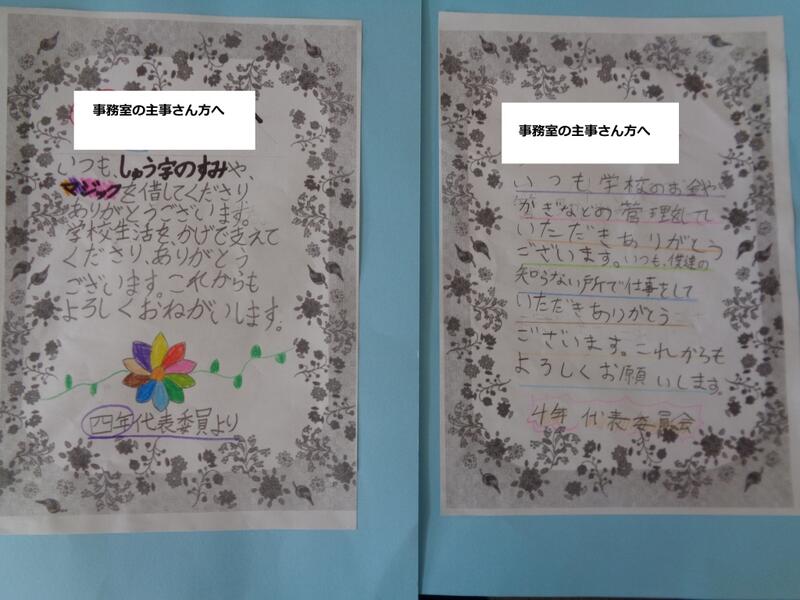 事務室の主事さん方へ
いつも、しゅう字のすみや、
マジックを借してくださり
ありがとうございます。
学校生活を、かげで支えて
くださり、ありがとう
ございます。これからも
よろしくおねがいします。
四年代表委員より
事務室の主事さん方へ
いつも学校のお金や
かぎなどの管理をして
いただきありがとう
ございます。いつも、僕達の
知らない所で仕事をして
いただきありがとう
ございます。これからも
よろしくお願いします。
4年 代表委員会